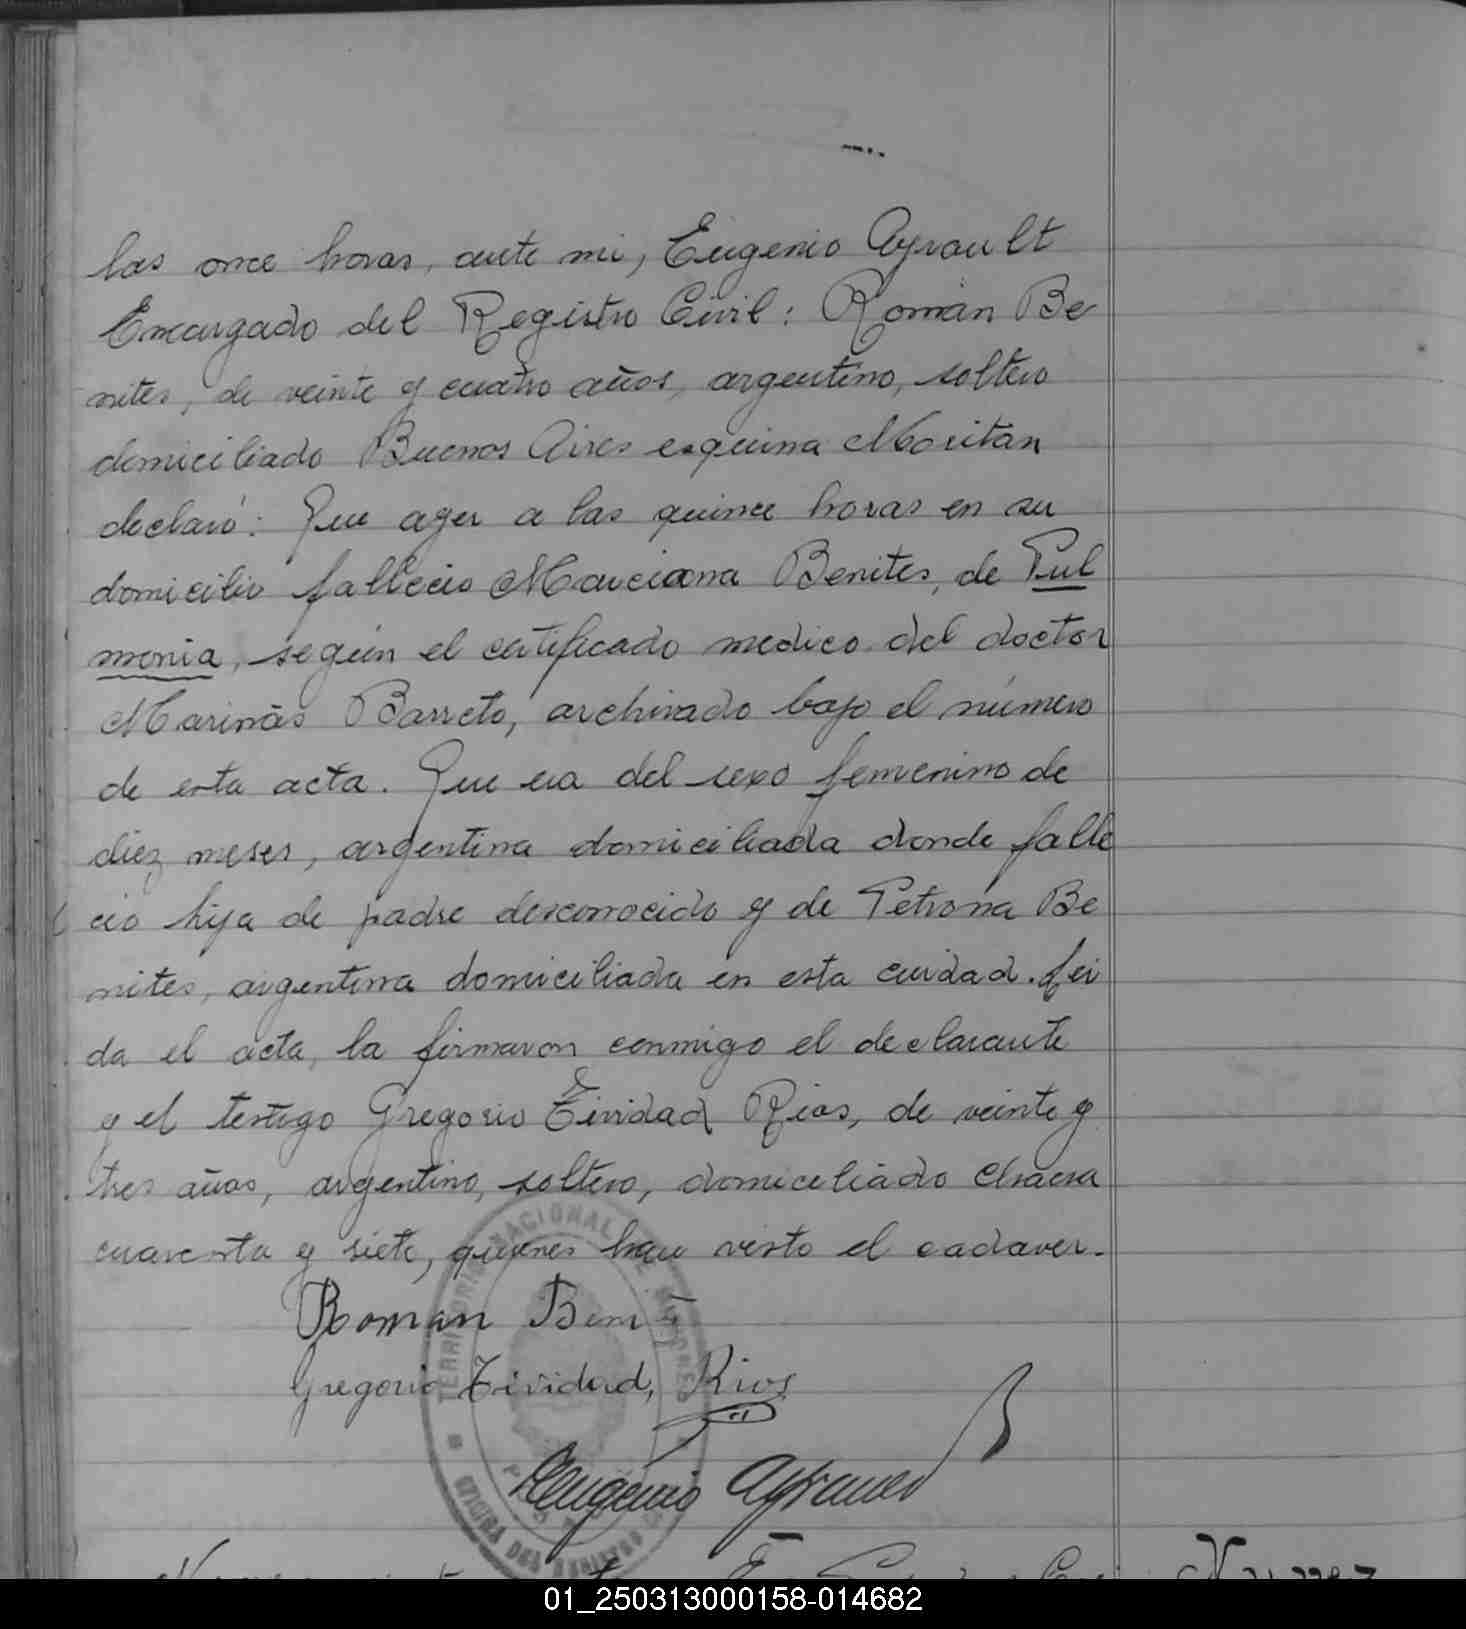 las once horas, ante mi, Eugenio Ayrault
Encargado del Registro Civil: Román Be
nites, de veinte y cuatro años, argentino, soltero
domiciliado Buenos Aires esquina Moritan
declaró: Que ayer a las quince horas en su
domicilio falleció Marciana Benites, de Pul
monia, según el certificado medico del doctor
Marinas Barreto, archivado bajo el número
de esta acta. Que era del sexo femenino de
diez meses, argentina domiciliada donde falle
ció hija de padre desconocido y de Petrona Be
nites, argentina domiciliada en esta cuidad. Lei
da el acta, la firmaron conmigo el declarante
y el testigo Gregorio Tividad Rios, de veinte y
tres años, argentino, soltero, domiciliado Chacra
cuarenta y siete, quienes han visto el cadaver.
Roman Benitz
Gregorio Tividad, Rios
Eugenio Ayrault
TERRITORIO NACIONAL DE MISIONES
OFICINA DEL REGISTRO
01_250313000158-014682